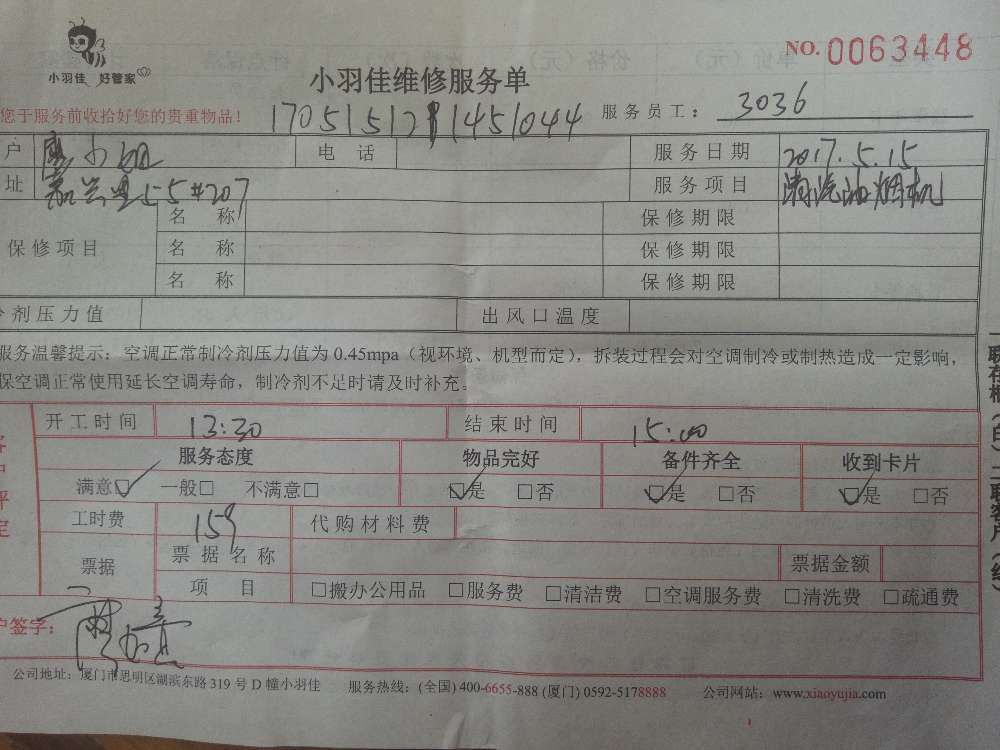 小羽佳 好管家
NO. 0063448
小羽佳维修服务单
您于服务前收拾好您的贵重物品!
服务员工: 3036
户 小姐 电 话 服务日期 2017.5.15
址 55#207 服务项目 清洗油烟机
保修项目 名 称 保修期限
名 称 保修期限
名 称 保修期限
剂压力值 出风口温度
服务温馨提示: 空调正常制冷剂压力值为 0.45mpa (视环境、机型而定), 拆装过程会对空调制冷或制热造成一定影响,
保空调正常使用延长空调寿命, 制冷剂不足时请及时补充。
客户评定
开工时间 13:30 结束时间 15:00
服务态度 物品完好 备件齐全 收到卡片
满意☑ 一般□ 不满意□ ☑是 □否 ☑是 □否 ☑是 □否
工时费 159 代购材料费
票据 票据名称 票据金额
项 目 □搬办公用品 □服务费 □清洁费 □空调服务费 □清洗费 □疏通费
户签字:
公司地址: 厦门市思明区湖滨东路 319 号 D 幢小羽佳 服务热线: (全国) 400-6655-888 (厦门) 0592-5178888 公司网站: www.xiaoyujia.com